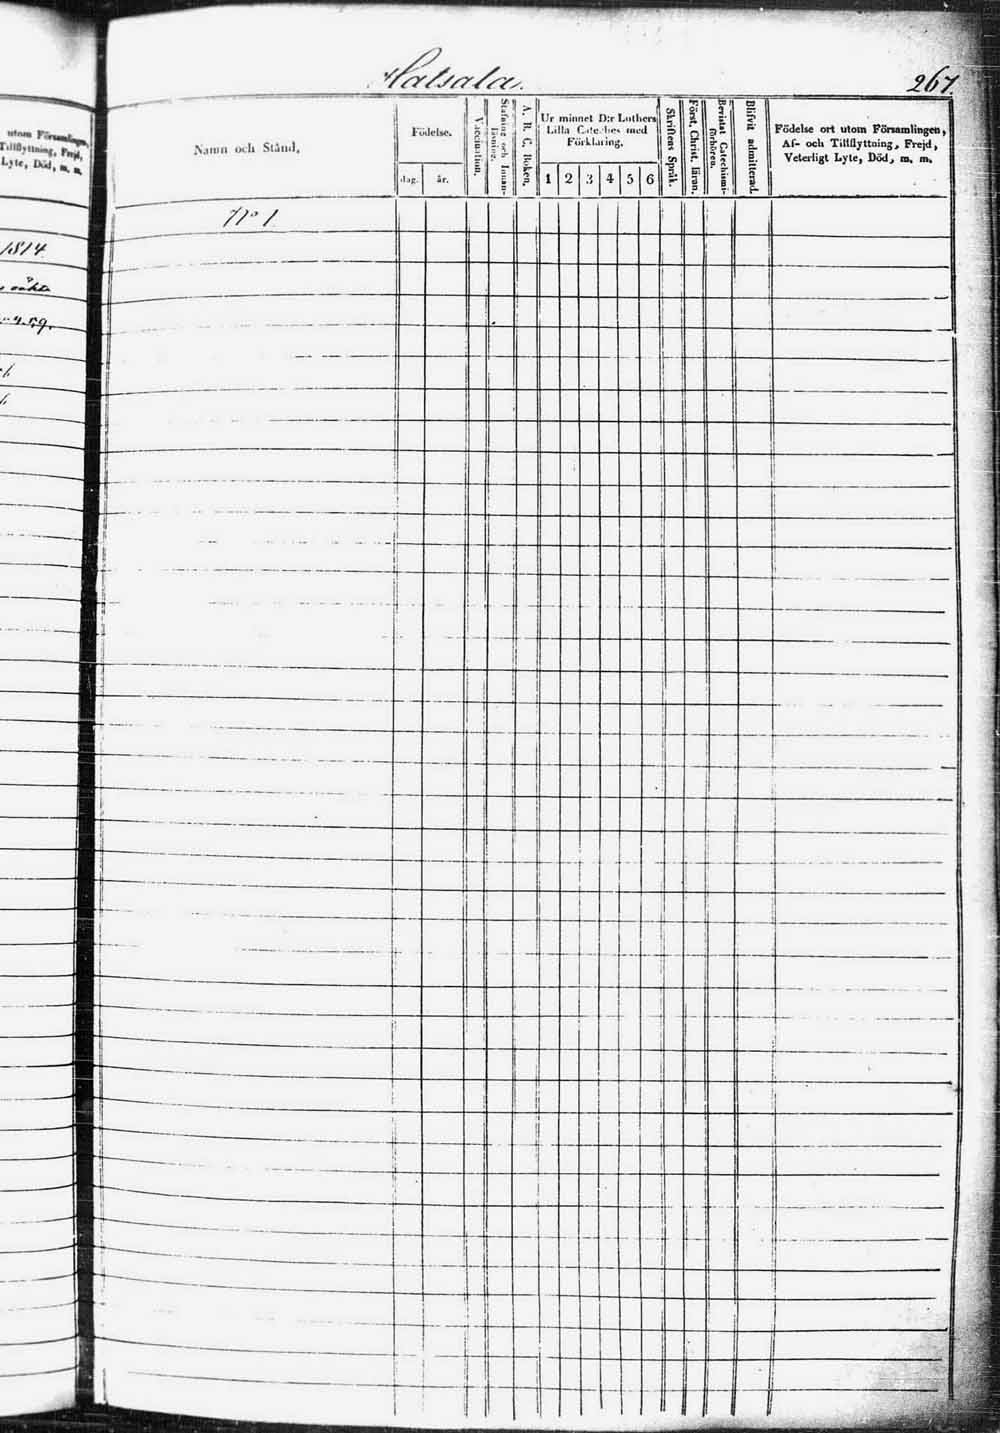 Hatsala.
267.
utom Församlingen,
Tillflyttning, Frejd,
Lyte, Död, m. m.
1814
Namn och Stånd,
Födelse.
dag. år.
Vaccination.
Stafning och Innan-
läsning.
A. B. C. Boken.
Ur minnet D:r Luthers
Lilla Cateches med
Förklaring.
1 2 3 4 5 6
Skriftens Språk.
Först. Christ. läran.
Bevistat Catechismi-
förhören.
Blifvit admitterad.
Födelse ort utom Församlingen,
Af- och Tillflyttning, Frejd,
Veterligt Lyte, Död, m. m.
No 1